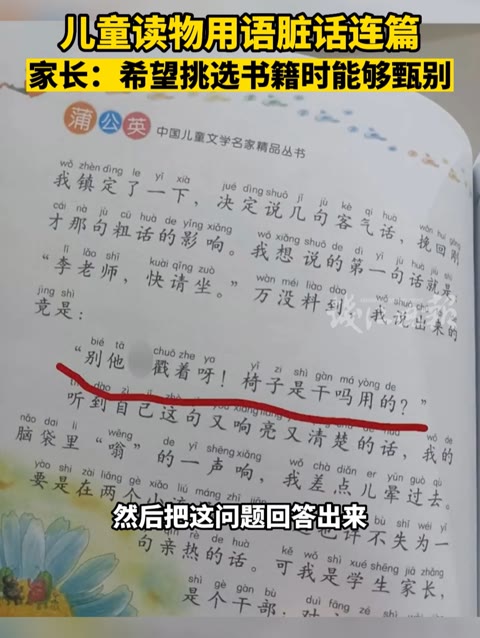 儿童读物用语脏话连篇
家长：希望挑选书籍时能够甄别
蒲公英
中国儿童文学名家精品丛书
wǒ zhèn dìng le yī xià jué dìng shuō jǐ jù kè qì huà
我镇定了一下，决定说几句客气话，挽回刚
cái nà jù cū huà de yǐng xiǎng wǒ xiǎng shuō de dì yī jù huà jiù shì
才那句粗话的影响。我想说的第一句话就是
lǐ lǎo shī kuài qǐng zuò wàn méi liào dào
“李老师，快请坐。”万没料到，我说出来的
jìng shì
竟是：
bié tā chuō zhe ya yǐ zi shì gàn má yòng de
“别他 戳着呀！椅子是干吗用的？”
听到自己这句又响亮又清楚的话，我的
nǎo dai lǐ wēng de yī shēng xiǎng wǒ chà diǎn ér yūn guò qù
脑袋里“嗡”的一声响，我差点儿晕过去。
要是在两个小流
也许不失为一
句亲热的话。可我是学生家长，
shì gè gàn bù
是个干部；对
然后把这问题回答出来